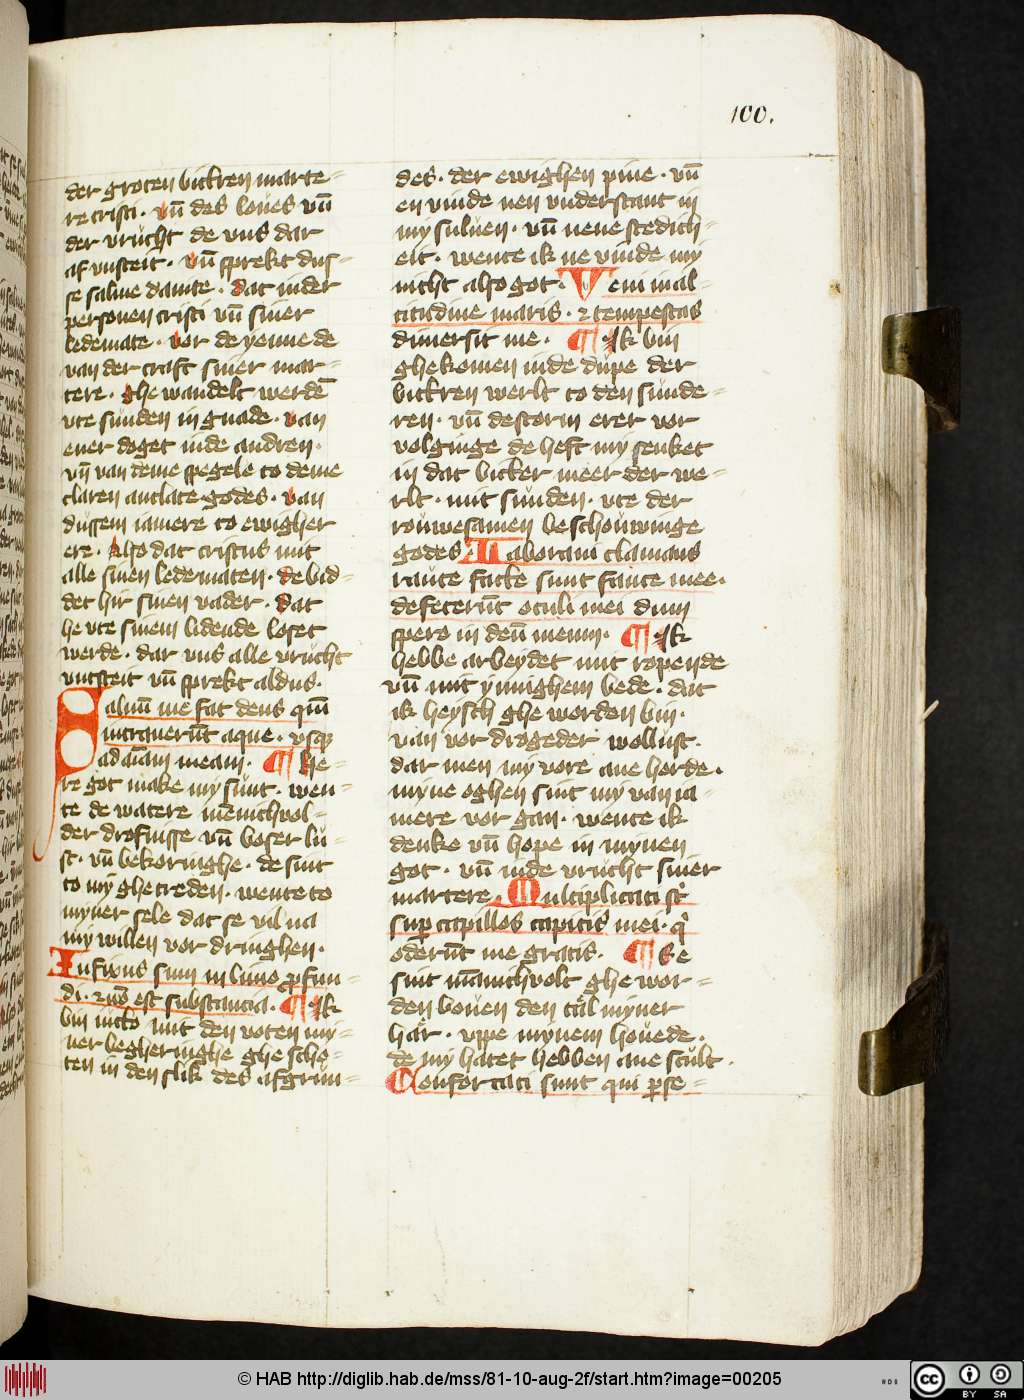 100.
der groten bittren marte-
re cristi. vn̄ des loues vn̄
der vrucht de vns dar
af vnsteit. vn̄ sprekt dus-
se salme dauite. dat in der
personen cristi vn̄ siner
ledemate. vor de yenne de
van der craft siner mar-
tere. ghe wandelt werdē
vte sunden in gnade. van
ener doget in de andren.
vn̄ van deme spegele to deme
claren antlate godes. van
dussem iamere to ewigher
ere. Also dat cristus mit
alle sinen ledematen. de bid-
det hir sinen vader. dat
he vte sinem lidende loset
werde. dar vns alle vrucht
vntsteit vn̄ sprekt aldus.
Saluū me fac deus qm̄
intrauerūt aque. vsq
ad aīam meam. ¶ he-
re got make my sunt. wen-
te de watere mēnichuol-
der drofnisse vn̄ boser lu-
st. vn̄ bekoringhe. de sint
to my ghetreden. wente to
myner sele dat se vil na
my willen vor dringhen.
Infixus sum in limo profun-
di. et nō est substancia. ¶ Ik
bin mit den voten my-
ner begheringhe ghe scho-
ten in den slik des afgrun-
des. der ewighen pine. vn̄
en vinde nen vnderstant in
my suluen. vn̄ nene stedich-
eit. wente ik ne vinde my
nicht also got. Veni in al-
titudine maris. et tempestas
dimersit me. ¶ Ik bin
ghekomen in de dupe der
bittren werlt to den sunde-
ren. vn̄ de storm erer vor
volginge de heft my senket
in dat bitter meer der we-
rlt. mit sunden. vte der
rouwesamen beschouwinge
godes Laboraui clamans
rauce facte sunt fauce mee.
defecerūt oculi mei dum
spero in deū meum. ¶ Ik
hebbe arbeydet mit ropende
vn̄ mit ynnighem bede. dat
ik heysch ghe worden bin.
van vor drogeder wollust.
dar men my vore ane horde.
myne oghen sint my van ia-
mere vor gan. wente ik
denke vn̄ hope in mynen
got. vn̄ in de vrucht siner
martere. Multiplicati st
sup capillos capitis mei. q
oderūt me gratis. ¶ Se
sint mānichuolt ghe wor-
den bouen den tal myner
har. vppe mynem houede.
de my hatet hebben ane scult.
Confortati sunt qui pse-
© HAB http://diglib.hab.de/mss/81-10-aug-2f/start.htm?image=00205
BY SA